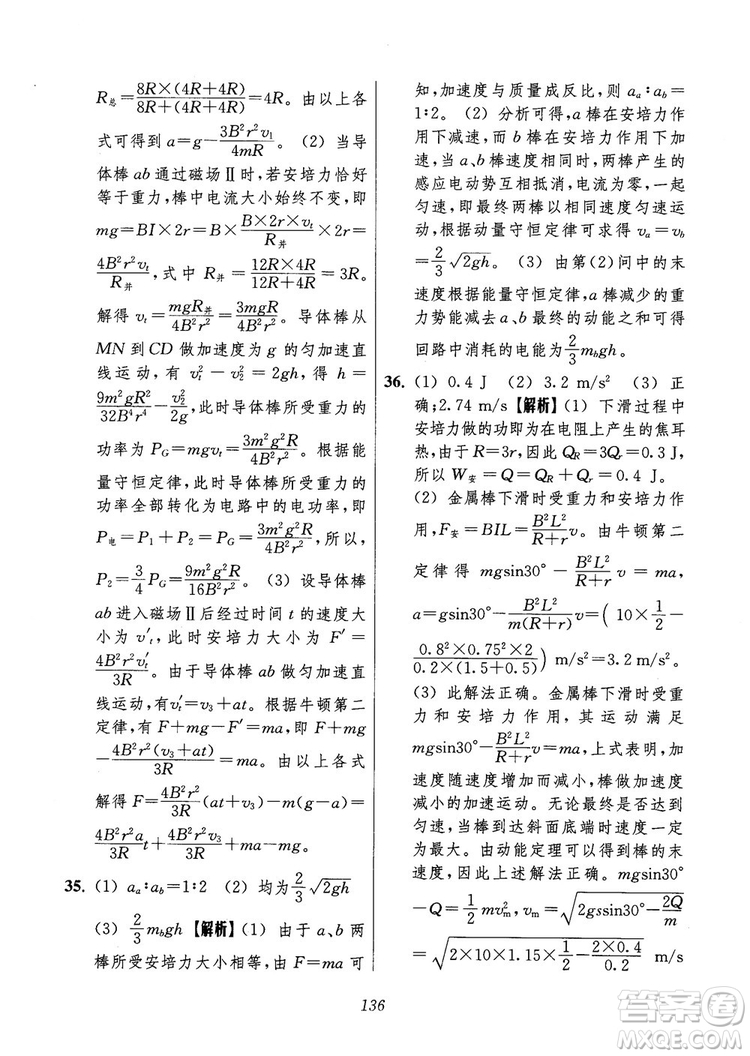 R总=8R×(4R+4R)/8R+(4R+4R)=4R。由以上各
式可得到 a=g-3B²r²v₁/4mR。(2) 当导
体棒 ab 通过磁场Ⅱ时,若安培力恰好
等于重力,棒中电流大小始终不变,即
mg=BI×2r=B×B×2r×vₜ/R并×2r=
4B²r²vₜ/R并,式中 R并=12R×4R/12R+4R=3R。
解得 vₜ=mgR并/4B²r²=3mgR/4B²r²。导体棒从
MN 到 CD 做加速度为 g 的匀加速直
线运动,有 vₜ²-v₂²=2gh,得 h=
9m²gR²/32B⁴r⁴-v₂²/2g,此时导体棒所受重力的
功率为 P_G=mgvₜ=3m²g²R/4B²r²。根据能
量守恒定律,此时导体棒所受重力的
功率全部转化为电路中的电功率,即
P电=P₁+P₂=P_G=3m²g²R/4B²r²,所以,
P₂=3/4P_G=9m²g²R/16B²r²。(3) 设导体棒
ab 进入磁场Ⅱ后经过时间 t 的速度大
小为 v′ₜ,此时安培力大小为 F′=
4B²r²v′ₜ/3R。由于导体棒 ab 做匀加速直
线运动,有 v′ₜ=v₃+at。根据牛顿第二
定律,有 F+mg-F′=ma,即 F+mg
-4B²r²(v₃+at)/3R=ma。由以上各式
解得 F=4B²r²/3R(at+v₃)-m(g-a)=
4B²r²a/3R t+4B²r²v₃/3R+ma-mg。
35. (1) aₐ∶a_b=1∶2 (2) 均为2/3√2gh
(3) 2/3m_bgh【解析】(1) 由于 a、b 两
棒所受安培力大小相等,由 F=ma 可
知,加速度与质量成反比,则 aₐ∶a_b=
1∶2。(2) 分析可得,a 棒在安培力作
用下减速,而 b 棒在安培力作用下加
速,当 a、b 棒速度相同时,两棒产生的
感应电动势互相抵消,电流为零,一起
匀速,即最终两棒以相同速度匀速运
动,根据动量守恒定律可求得 vₐ=v_b
=2/3√2gh。(3) 由第(2)问中的末
速度根据能量守恒定律,a 棒减少的重
力势能减去 a、b 最终的动能之和可得
回路中消耗的电能为2/3m_bgh。
36. (1) 0.4 J (2) 3.2 m/s² (3) 正
确;2.74 m/s【解析】(1) 下滑过程中
安培力做的功即为在电阻上产生的焦耳
热,由于 R=3r,因此 Q_R=3Qᵣ=0.3 J,
所以 W安=Q=Q_R+Qᵣ=0.4 J。
(2) 金属棒下滑时受重力和安培力作
用,F安=BIL=B²L²/R+r v。由牛顿第二
定律得 mgsin30°-B²L²/R+r v=ma,
a=gsin30°-B²L²/m(R+r)v=(10×1/2-
0.8²×0.75²×2/0.2×(1.5+0.5)) m/s²=3.2 m/s²。
(3) 此解法正确。金属棒下滑时受重
力和安培力作用,其运动满足
mgsin30°-B²L²/R+r v=ma,上式表明,加
速度随速度增加而减小,棒做加速度
减小的加速运动。无论最终是否达到
匀速,当棒到达斜面底端时速度一定
为最大。由动能定理可以得棒的末
速度,因此上述解法正确。mgsin30°
-Q=1/2mvₘ²,vₘ=√2gssin30°-2Q/m
=√2×10×1.15×1/2-2×0.4/0.2 m/s
136
答案圈